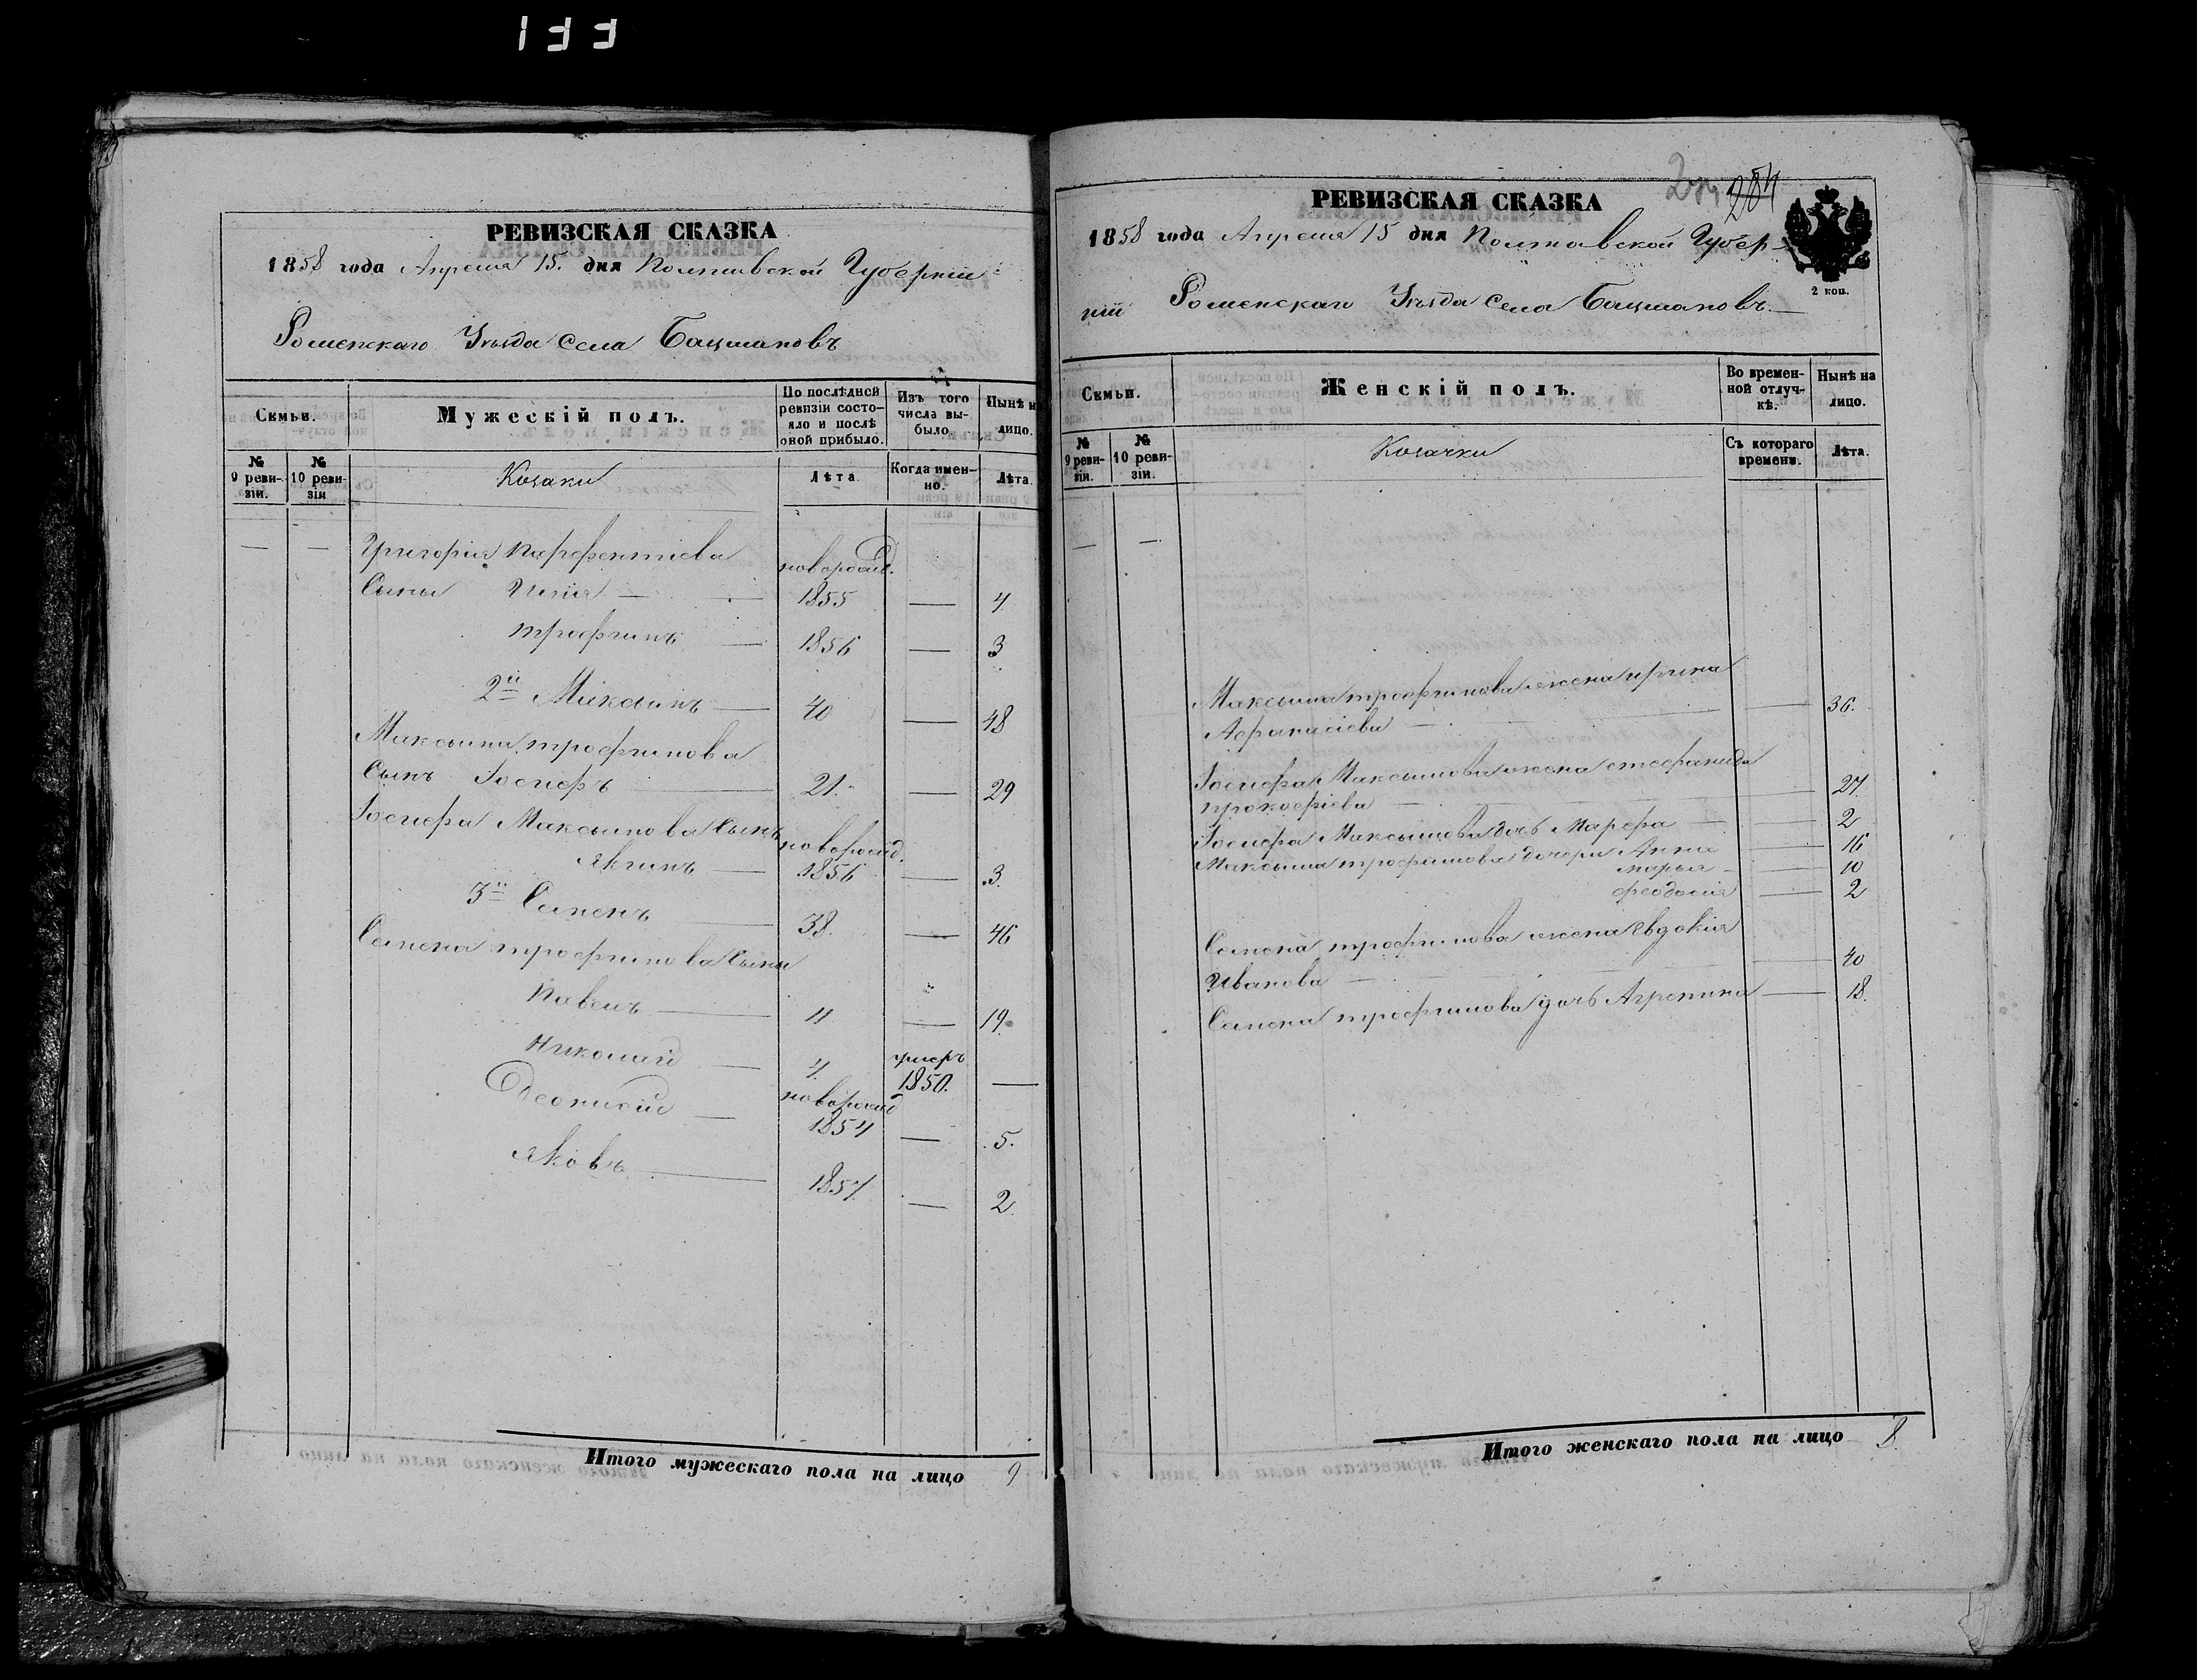 133
РЕВИЗСКАЯ СКАЗКА
1858 года Апреля 15. дня Полтавской Губерніи
Роменскаго Уѣзда Села Бацмановъ
Семьи.
Мужескій полъ.
По послѣдней ревизіи состояло и послѣ оной прибыло.
Изъ того числа выбыло.
Нынѣ н лицо.
№ 9 ревизіи.
№ 10 ревизіи
Козаки
Лѣта.
Когда именно.
Лѣта.
— — Григорія Парфентіева новорожд.
Сыны Илія — 1855 — 4
Трофимъ — 1856 — 3
2й Максимъ — 40 — 48
Максыма трофимова
Сынъ Іосифъ — 21. — 29
Іосифа Максымова Сынъ новорожд.
Якимъ — 1856 — 3.
3й Семенъ — 38. — 46
Семена трофимова Сыны
Павелъ — 11 — 19.
Николай — 4. умеръ 1850. —
Деонисій — новорожд 1854 — 5.
Яковъ — 1857. — 2.
Итого мужескаго пола на лицо 9
284
РЕВИЗСКАЯ СКАЗКА
1858 года Апреля 15 дня Полтавской Губер-
ніи Роменскаго Уѣзда Села Бацмановъ.—
2 коп.
Семьи.
Женскій полъ.
Во временной отлучкѣ.
Нынѣ на лицо.
№ 9 ревизіи.
№ 10 ревизіи.
Козачки
Съ котораго времени.
Лѣта.
— —
Максыма трофимова жена ирина
Афанасіева — — 36.
Іосифа Максымова жена стефанида
прокофіева — — 27.
Іосифа Максымова дочь Марфа — — 2
Максыма трофимова дочери Анна — 16
марья — — 10
феодосія — 2
Семена трофимова жена Евдокія
Иванова — — 40
Семена трофимова дочь Агрепина — 18.
Итого женскаго пола на лицо 8.